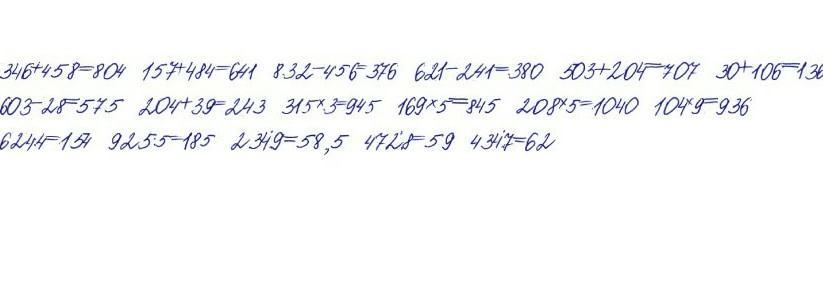 346+458=804 157+484=641 832-456=376 621-241=380 503+204=707 30+106=136
603-28=575 204+39=243 315×3=945 169×5=845 208×5=1040 104×9=936
624:4=154 925:5=185 234:9=58,5 472:8=59 434:7=62